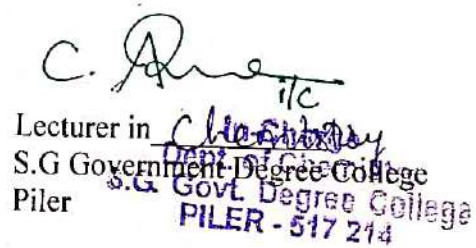 C.
i/c
Lecturer in Chemistry
S.G Government Degree College
Piler
Dept. of Chemistry
S.G. Govt. Degree College
PILER - 517 214